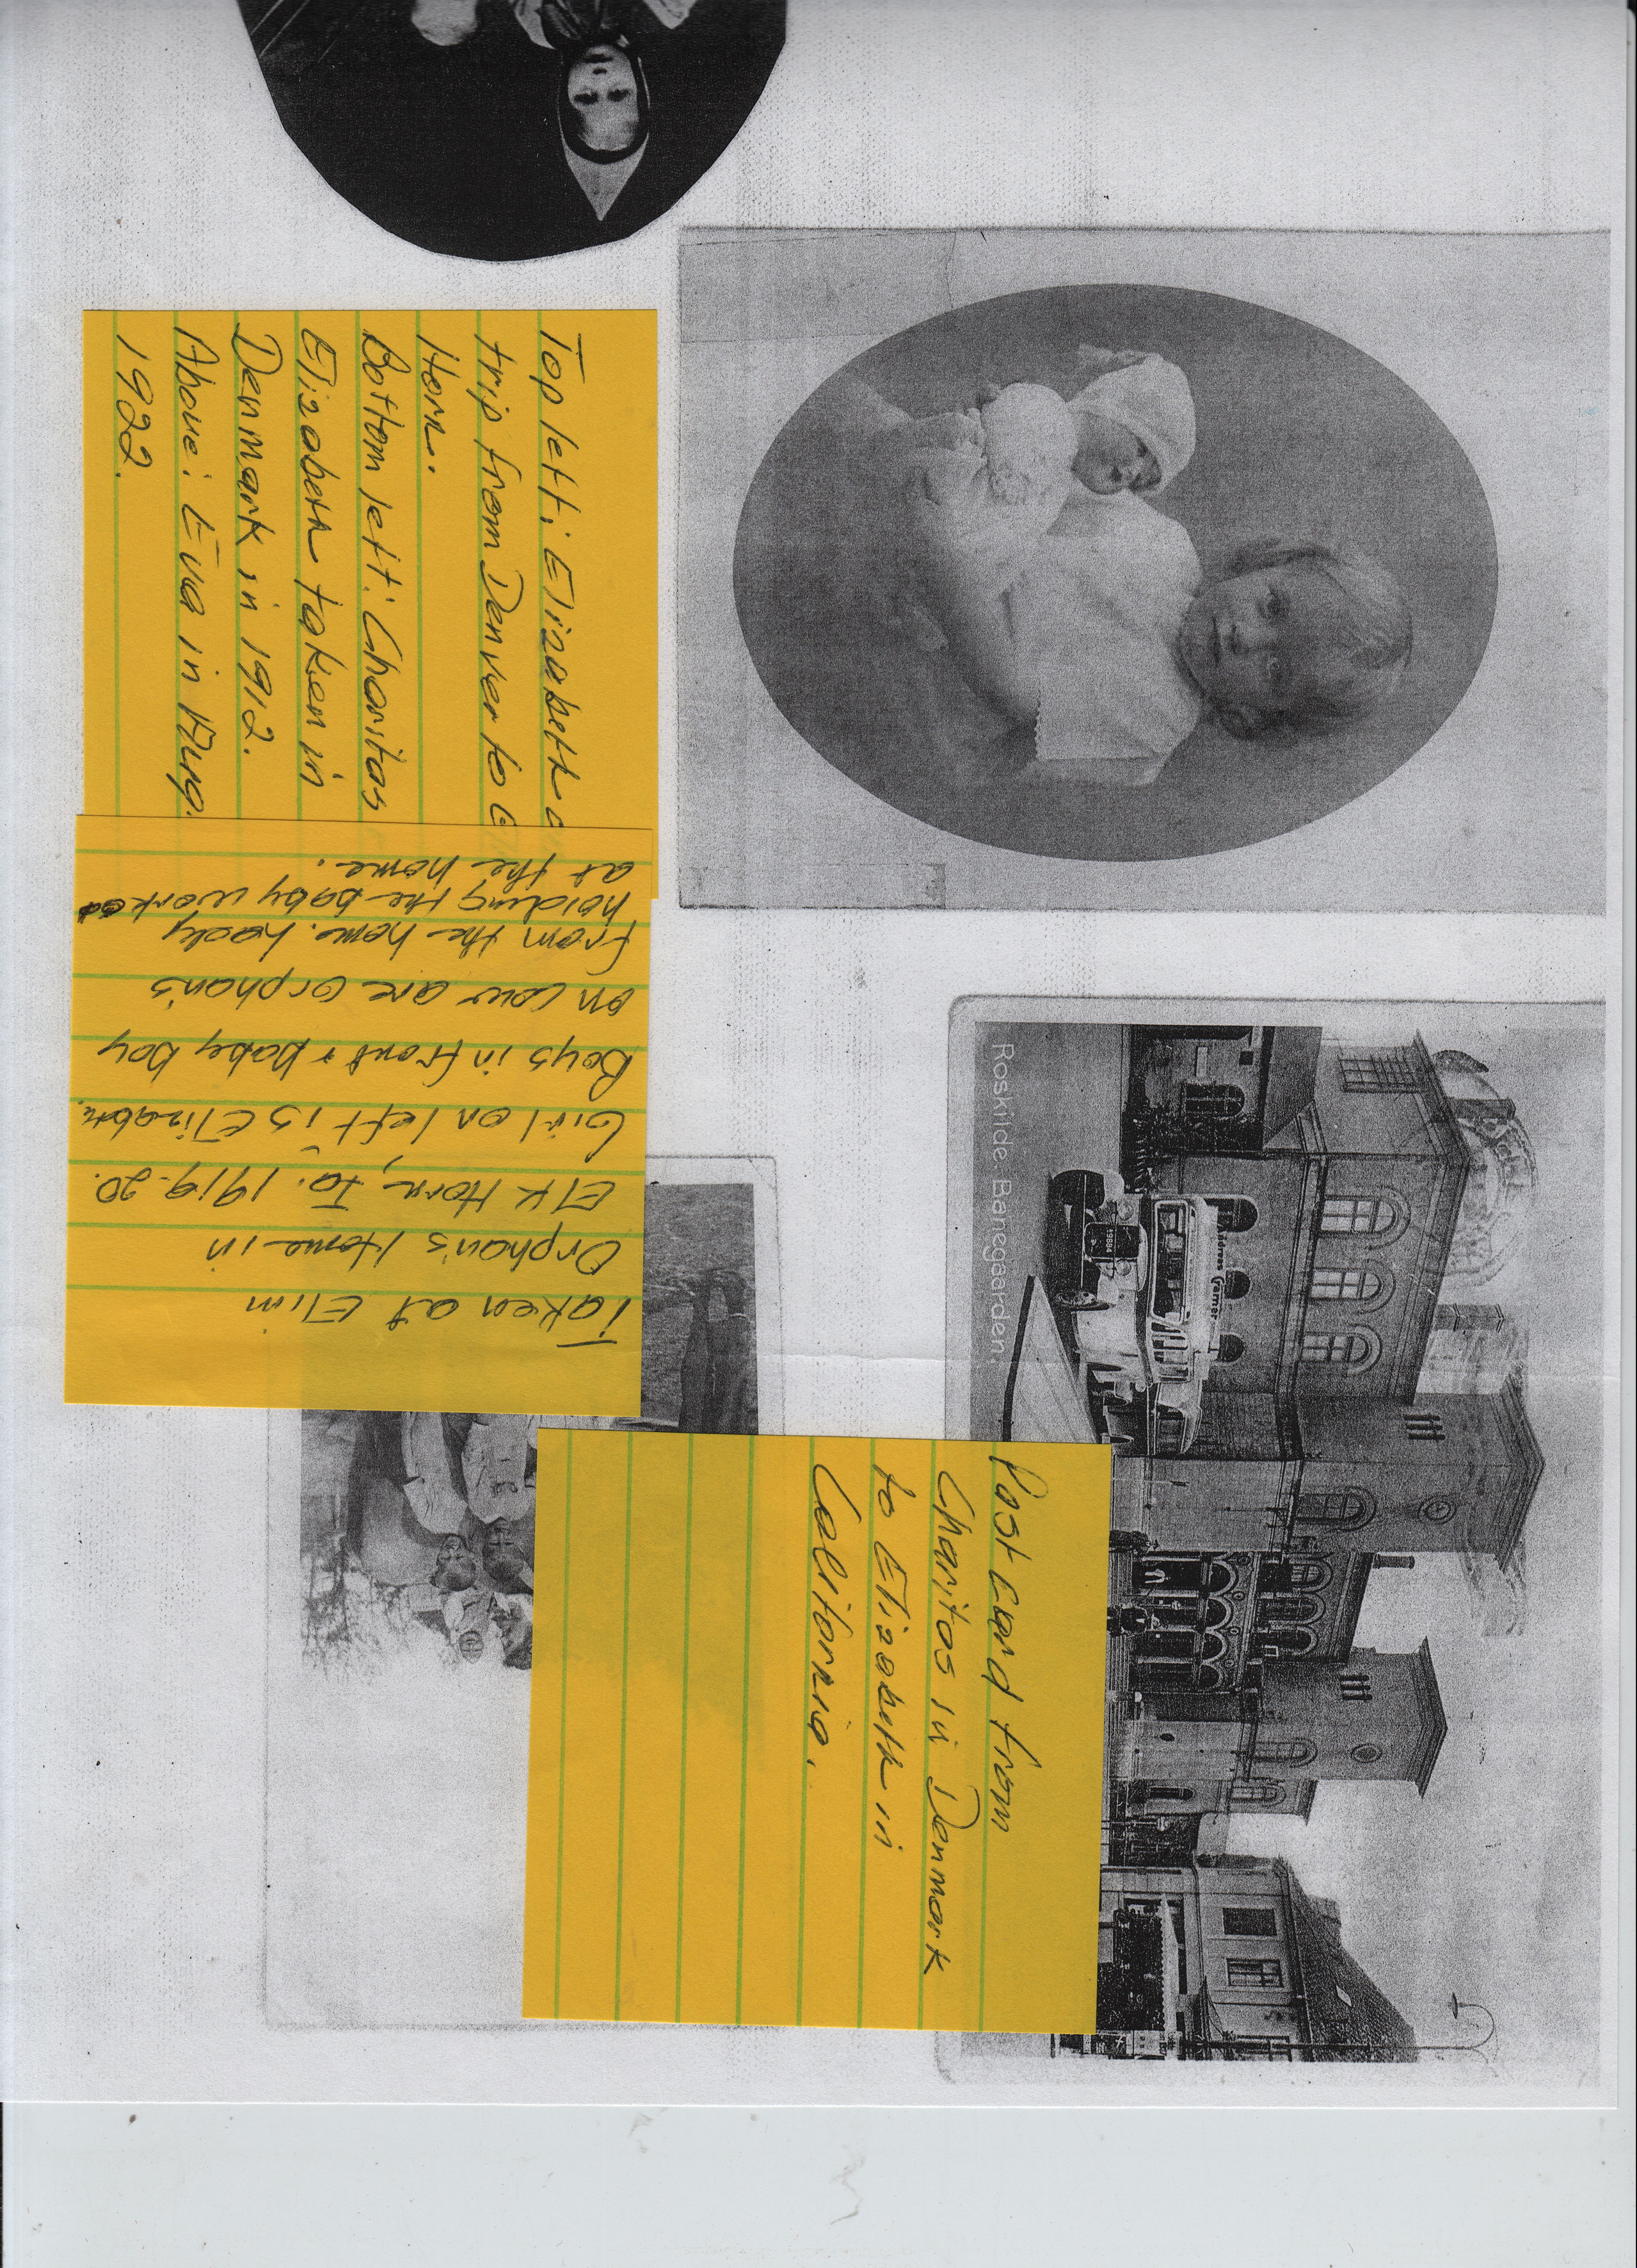 Top left: Elizabeth
trip from Denver to
Horn.
Bottom left: Charitas
Elizabeth taken in
Denmark in 1912.
Above: Eva in Aug.
1922.
Taken at Elim
Orphan's Home in
Elk Horn, Ia. 1919-20.
Girl on left is Elizabeth.
Boys in front & baby boy
on cow are orphan's
from the home. Lady
holding the baby worked
at the home.
Post card from
Charitas in Denmark
to Elizabeth in
California.
Roskilde. Banegaarden.
19884